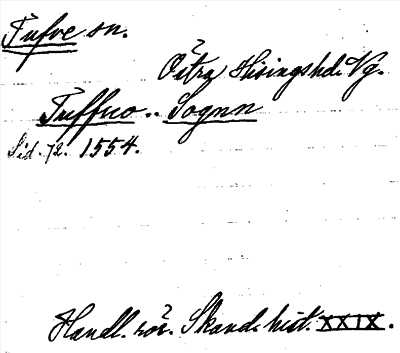 Tufve sn.
Östra Hisings hd. Vg.
Tuffwo .. Sognn
Sid. 72. 1554.
Handl. rör. Skand. hist. XXIX.